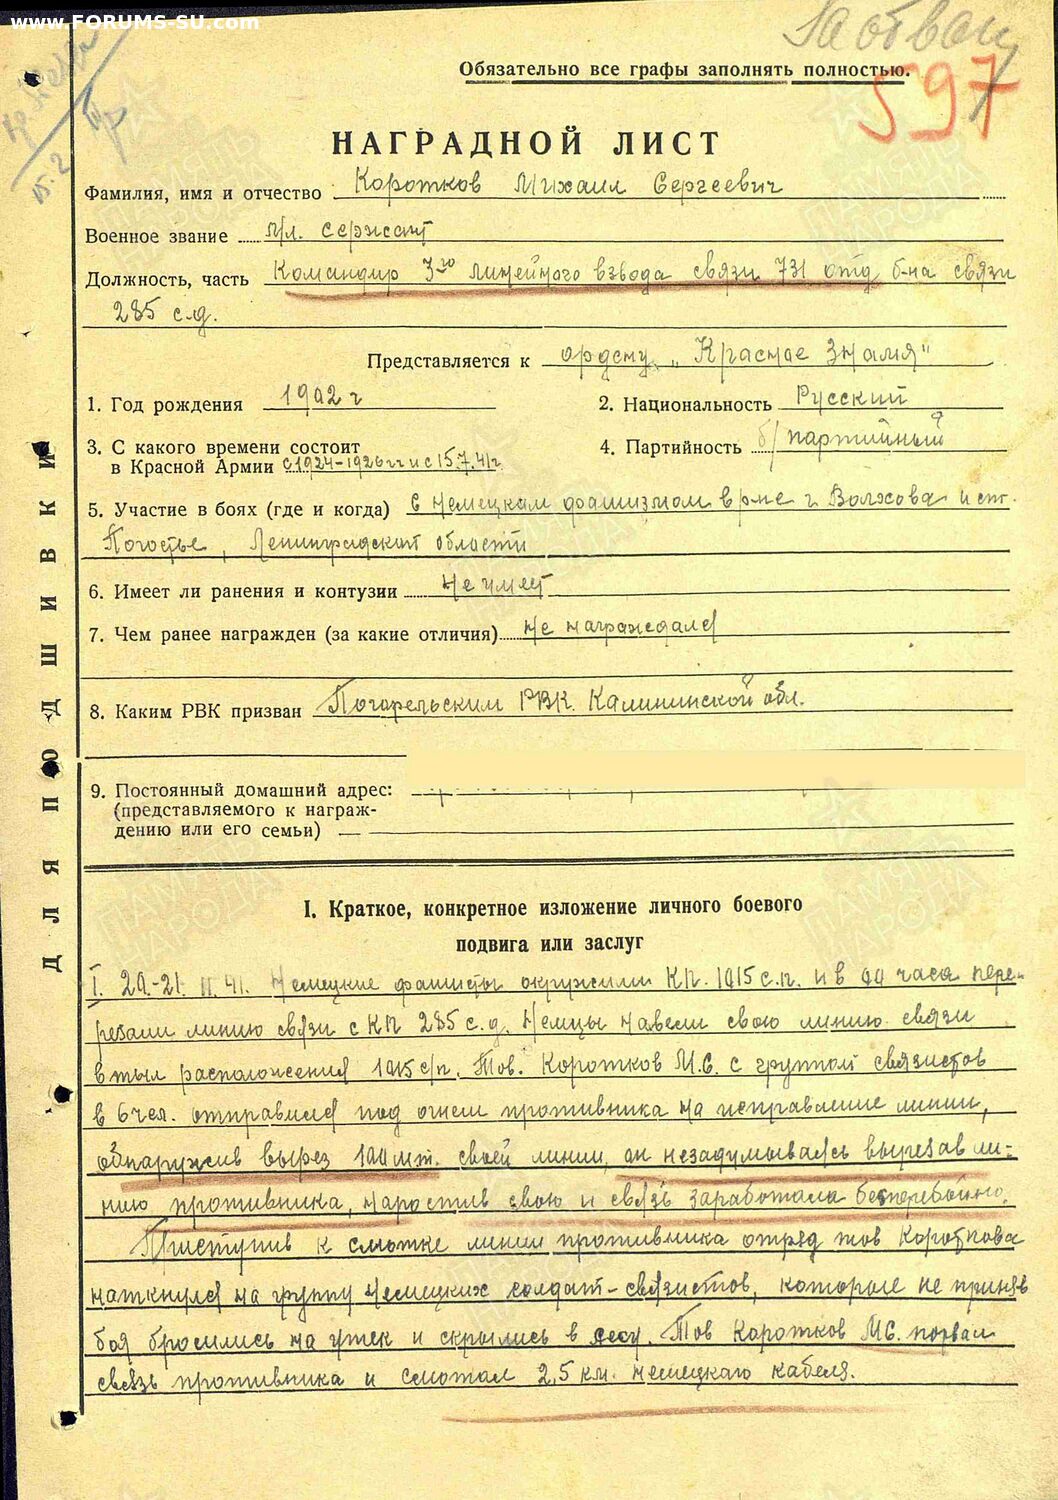 www.FORUMS-SU.com
За отвагу
Обязательно все графы заполнять полностью.
597
15.2
НАГРАДНОЙ ЛИСТ
Фамилия, имя и отчество Коротков Михаил Сергеевич
Военное звание мл. сержант
Должность, часть Командир 3го линейного взвода связи 731 отд. б-на связи
285 с.д.
Представляется к ордену „Красное Знамя"
1. Год рождения 1902 г
2. Национальность Русский
3. С какого времени состоит
в Красной Армии с 1924-1926 гг и с 15.7.41г
4. Партийность б/партийный
5. Участие в боях (где и когда) с немецким фашизмом в р-не г. Волхова и ст.
Погостье, Ленинградской области
6. Имеет ли ранения и контузии не имеет
7. Чем ранее награжден (за какие отличия) не награждался
8. Каким РВК призван Погорельским РВК. Калининской обл.
9. Постоянный домашний адрес:
(представляемого к награж-
дению или его семьи)
ДЛЯ ПОДШИВКИ
I. Краткое, конкретное изложение личного боевого
подвига или заслуг
I. 20-21. 41. Немецкие фашисты окружили КП. 1015 с.п. и в часа пере-
резали линию связи с КП 285 с.д. Немцы навели свою линию связи
в тыл расположения 1015 с/п. Тов. Коротков М.С. с группой связистов
в 6 чел. отправился под огнем противника на исправление линии,
обнаружив вырез 100 мт. своей линии, он незадумываясь вырезав ли-
нию противника, наростив свою и связь заработала бесперебойно.
Приступив к смотке линии противника отряд тов Короткова
наткнулся на группу немецких солдат-связистов, которые не приняв
боя бросились на утек и скрылись в лесу. Тов Коротков М.С. порвал
связь противника и смотал 2,5 км. немецкаго кабеля.
ПАМЯТЬ НАРОДА